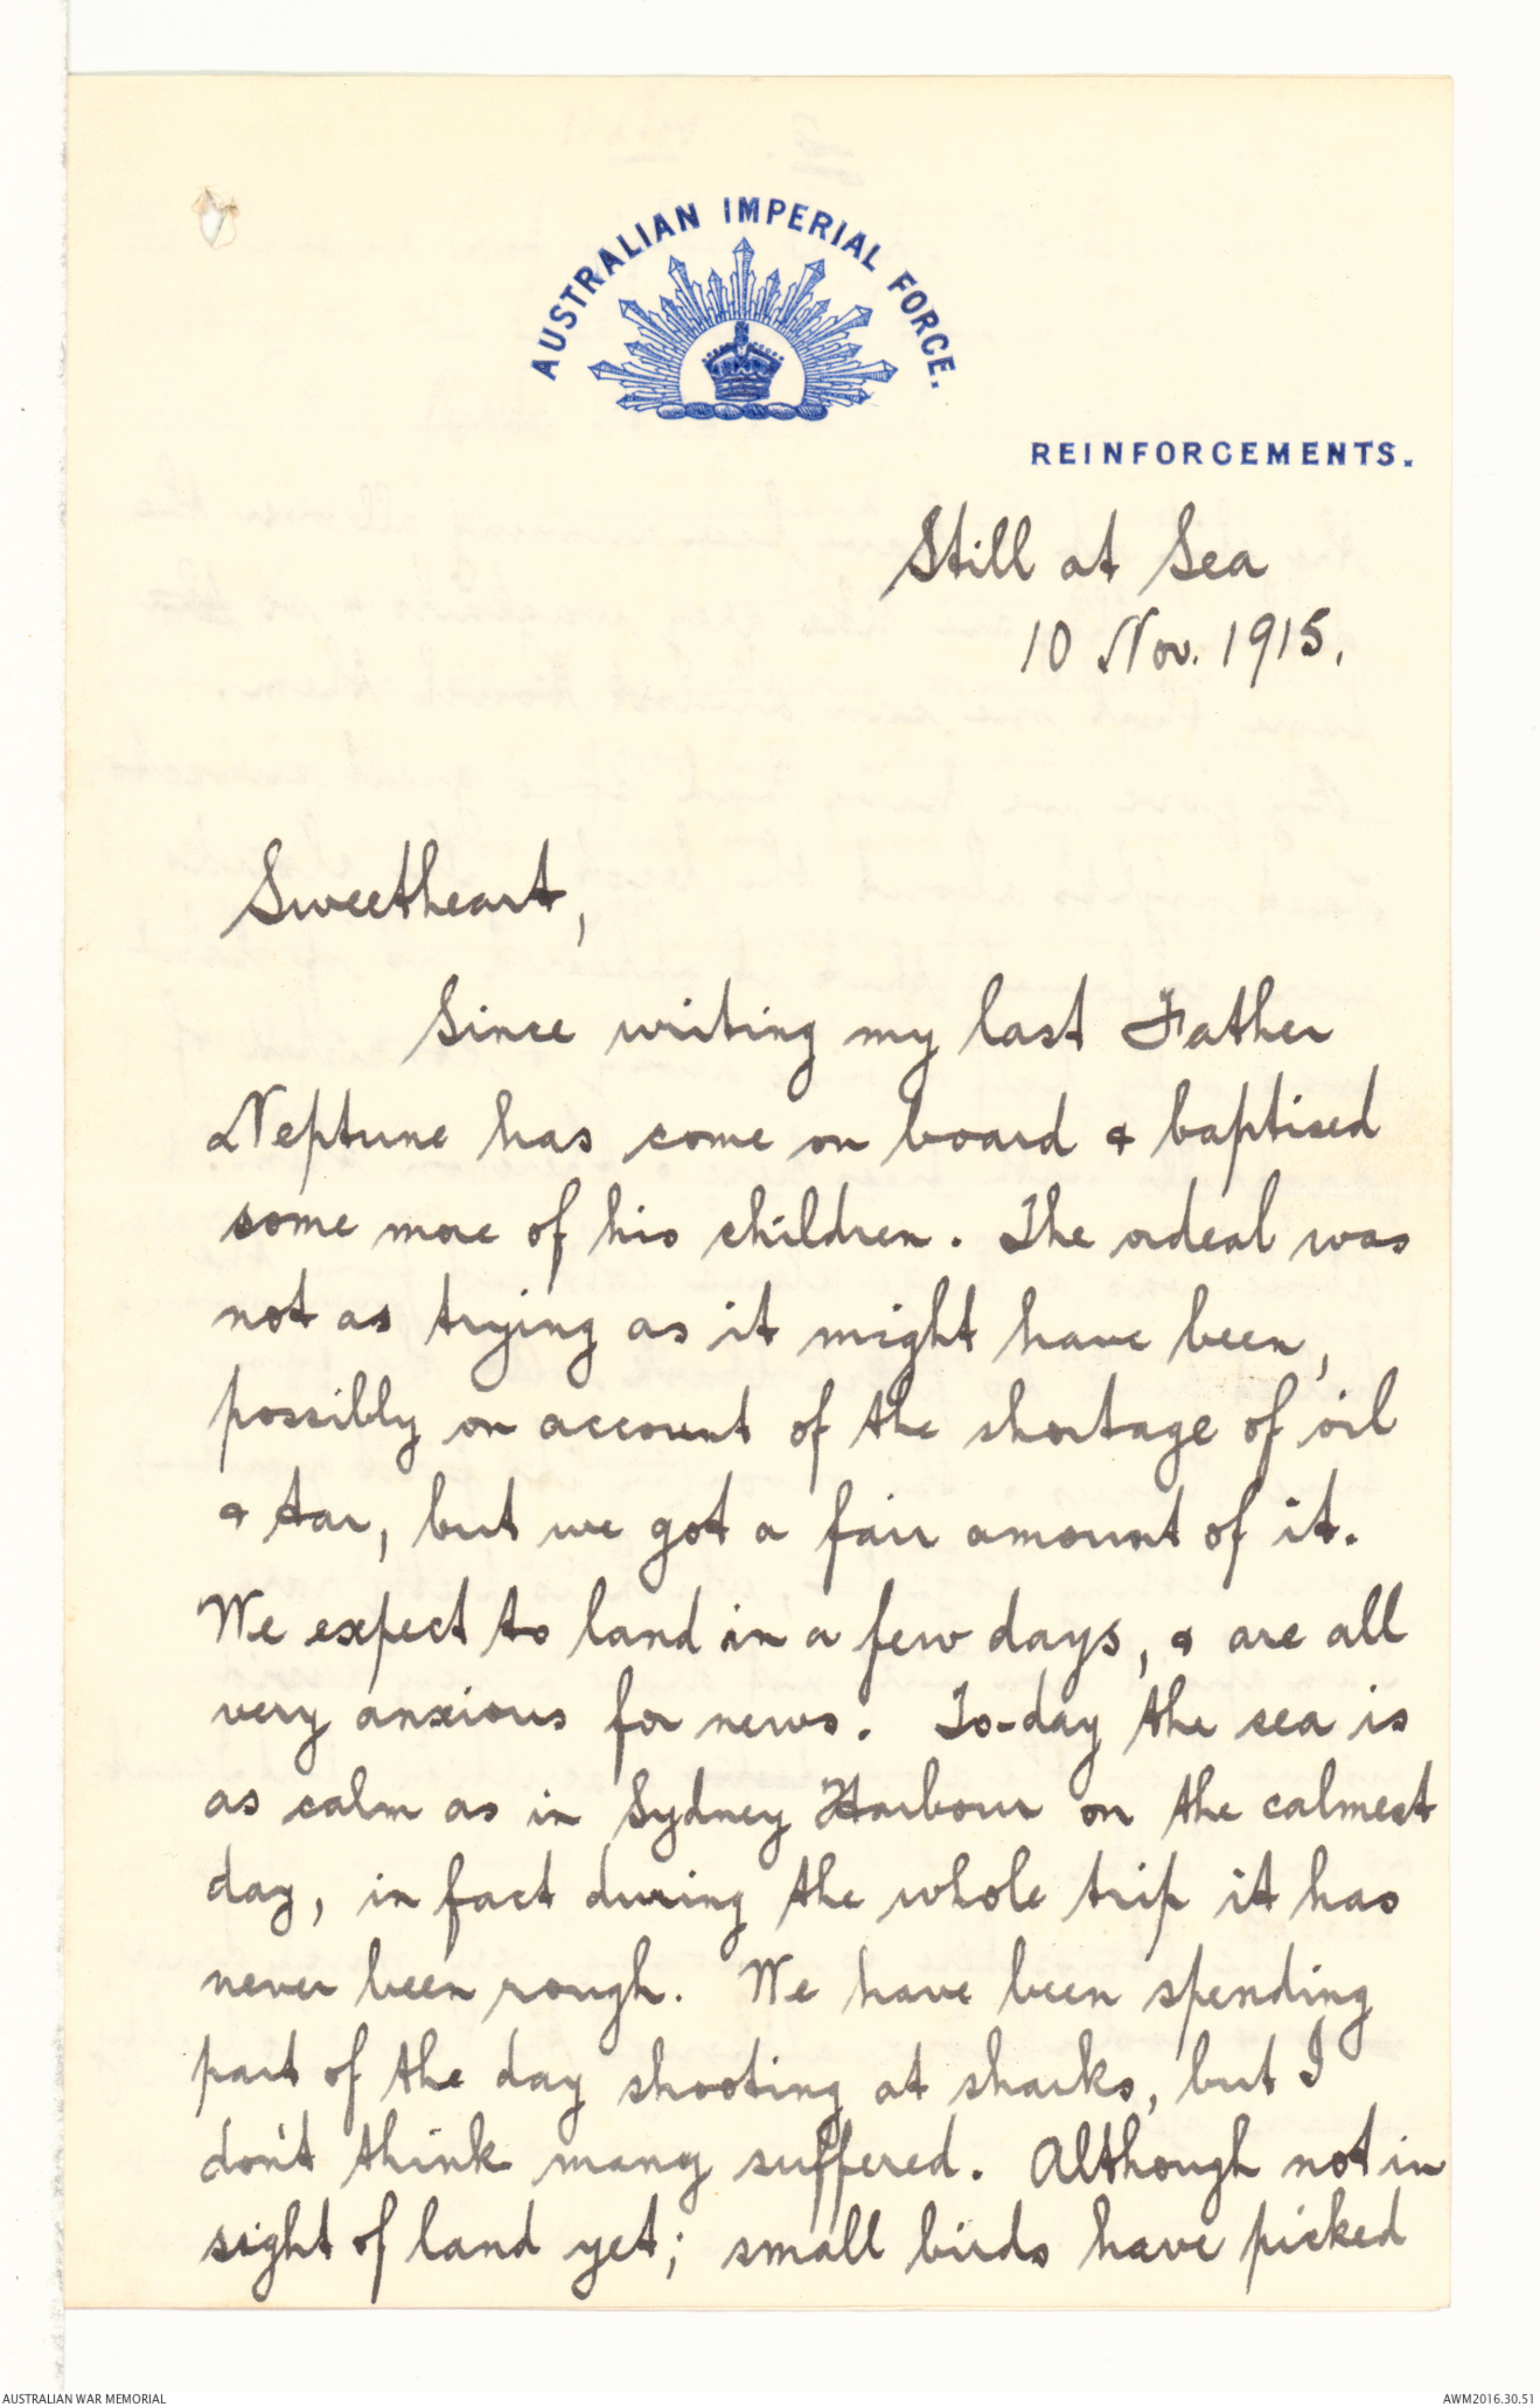 AUSTRALIAN IMPERIAL FORCE.
REINFORCEMENTS.
Still at Sea
10 Nov. 1915.
Sweetheart,
Since writing my last Father
Neptune has come on board & baptised
some more of his children. The ordeal was
not as trying as it might have been,
possibly on account of the shortage of oil
& tar, but we got a fair amount of it.
We expect to land in a few days, & are all
very anxious for news. To-day the sea is
as calm as in Sydney Harbour on the calmest
day, in fact during the whole trip it has
never been rough. We have been spending
part of the day shooting at sharks, but I
don't think many suffered. Although not in
sight of land yet; small birds have picked
AUSTRALIAN WAR MEMORIAL
AWM2016.30.51